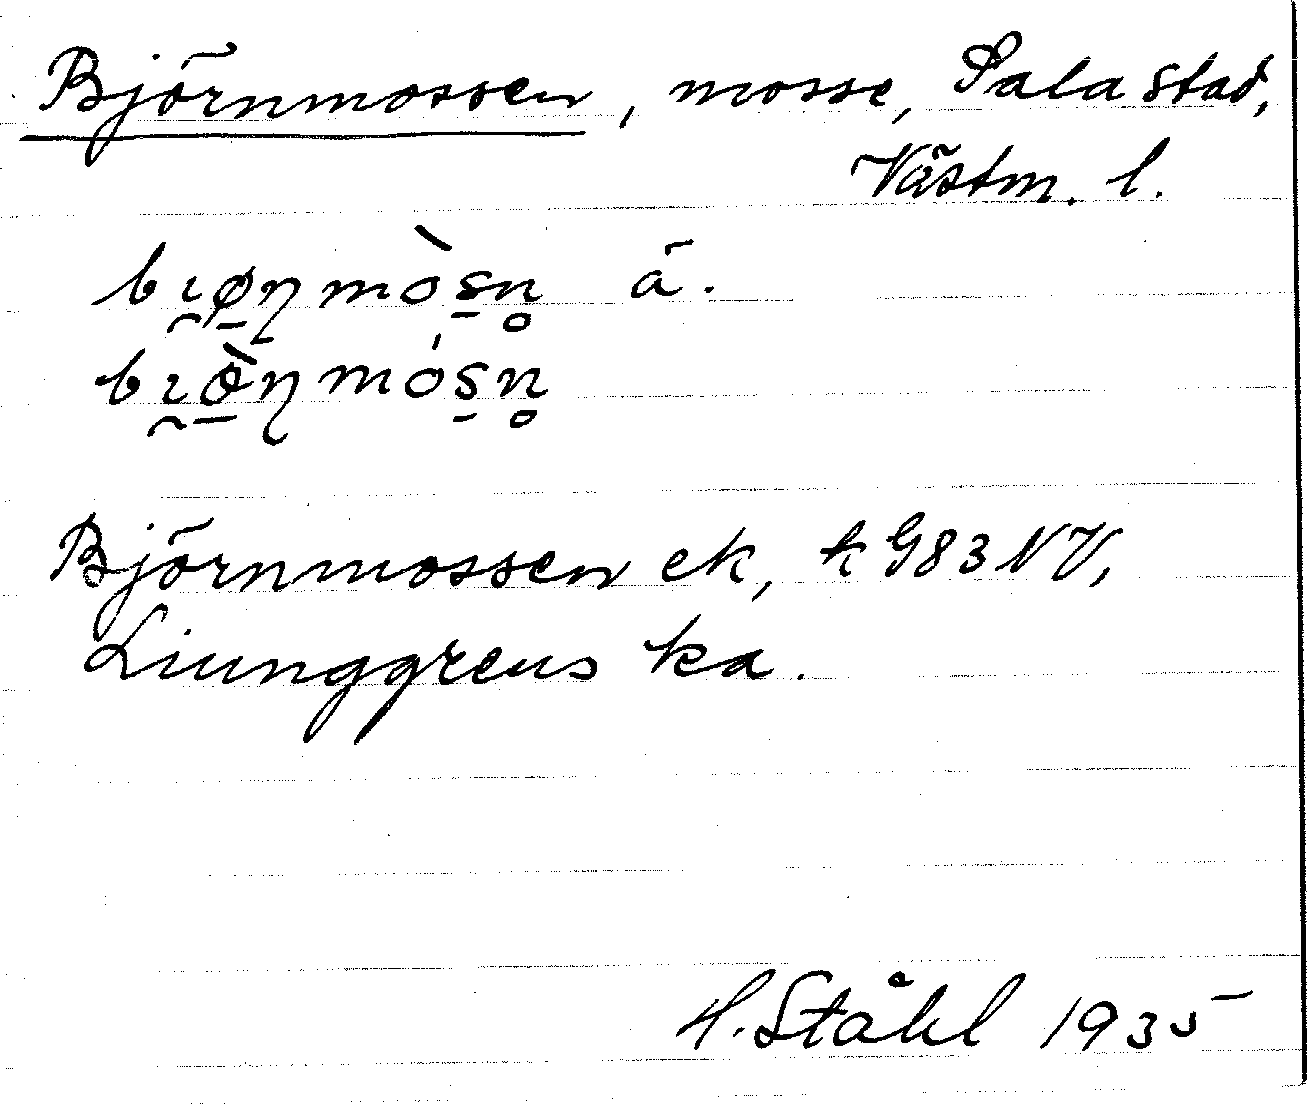 Björnmossen, mosse, Sala stad,
Västm. l.
bı̯øɳmòsn̥ ä.
bı̯ø̀ɳmósn̥
Björnmossen ek, k G83 NV,
Liunggrens ka.
H. Ståhl 1935